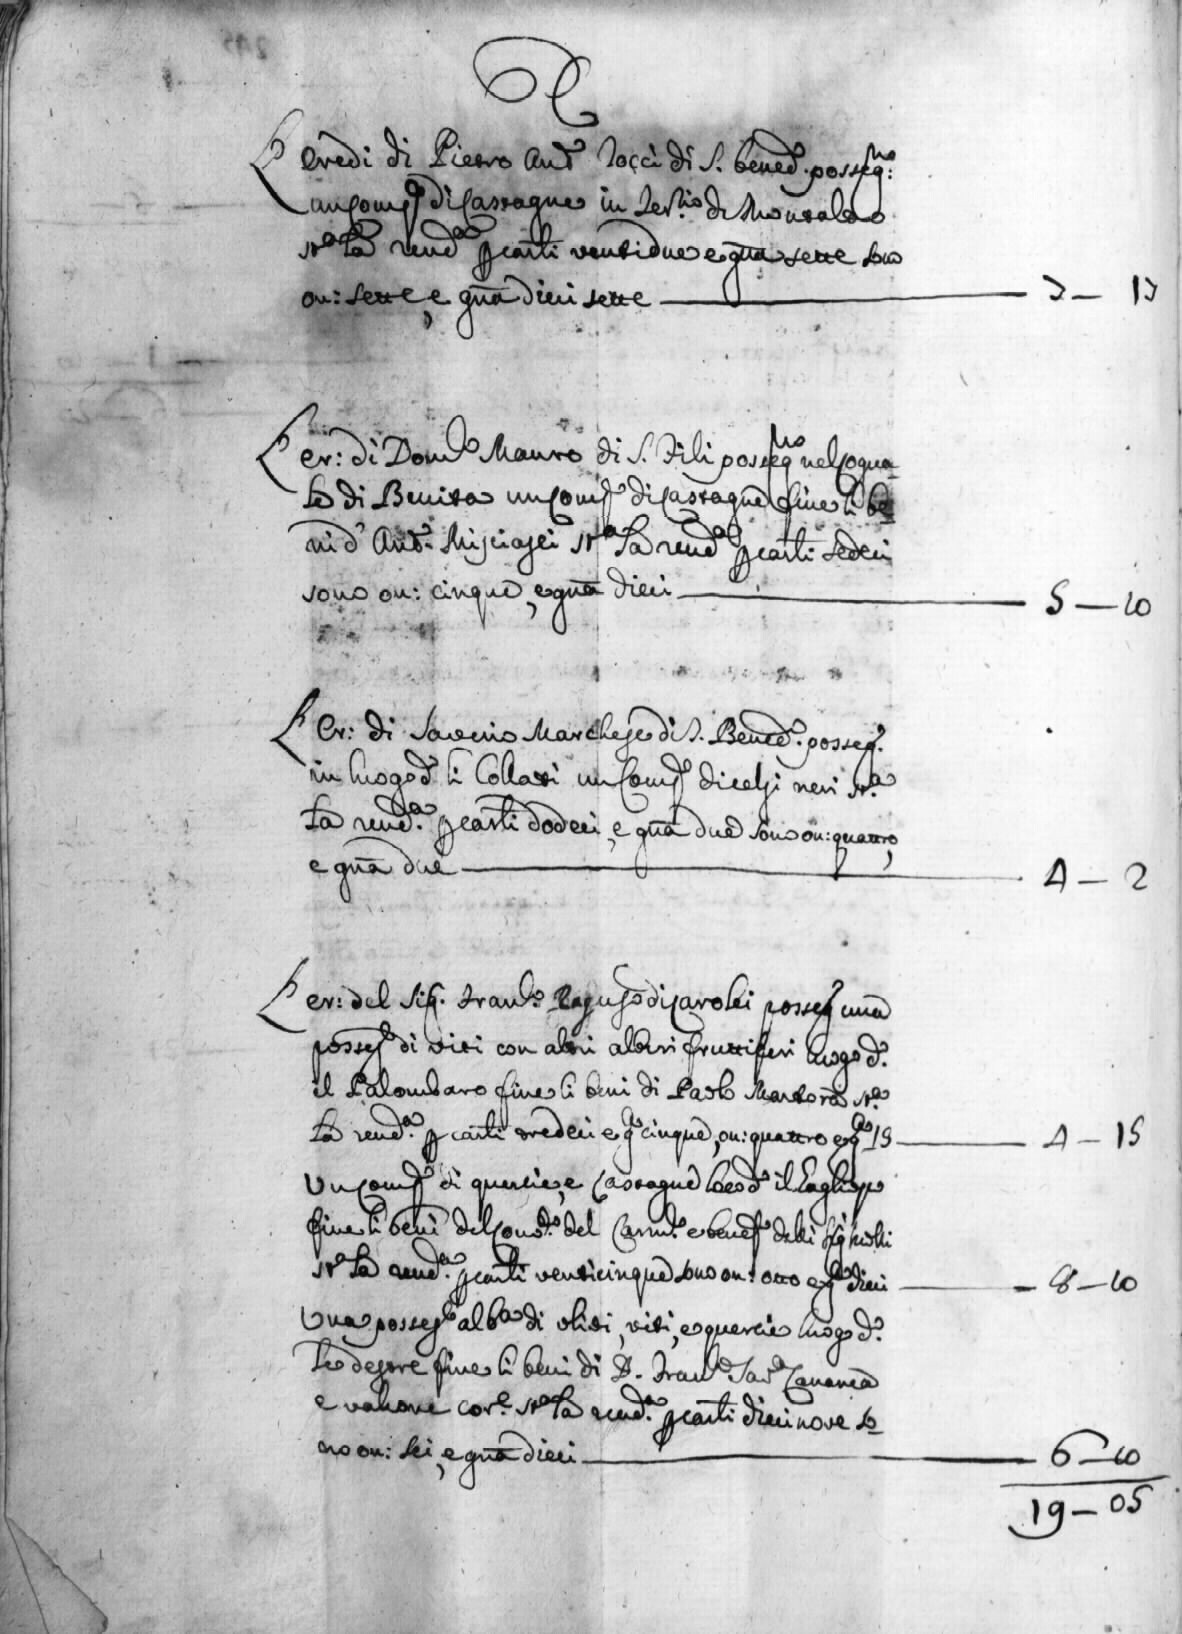 L'eredi di Pietro Ant.o Iocci di S. Bened.o possegno:
un comp.o di castagne in ter.rio di Montalto
st.a la rend.a p carli ventidue e gna sette sono
on: sette, e gna dieci sette 7 — 17
L'er: di Dom.co Mauro di S. Fili possegno nel cogna
le di Benita un comp.o di castagne fine li be
ni d'Ant.o st.a la rend.a p carli sedeci
sono on: cinque, e gna dieci 5 — 10
L'er: di Saverio Marchese di S. Bened.o posseg.o
in luogo d.o li Collati un comp.o di celsi neri st.a
la rend.a p carli dodeci, e gna due sono on: quattro,
e gna due 4 — 2
L'er: del Sig.r Fran.co di Carolei possegno una
posses.e di viti con altri alberi fruttiferi luogo d.o
il Palombaro fine li beni di Paolo st.a
la rend.a p carli tredeci e g.a cinque, on: quattro e g.a 15 4 — 15
Un comp.o di quercie, e castagne loco d.o il
fine li beni del Conv.to del Carm.e e benef.o delli
st.a la rend.a p carli venticinque sono on: otto e g.a dieci 8 — 10
Una posses.e alb.a di olivi, viti, e quercie luogo d.o
fine li beni di D. Fran.co Sav.o
e vallone cor.e st.a la rend.a p carli diecinove so
no on: sei, e gna dieci 6 — 10
19 — 05